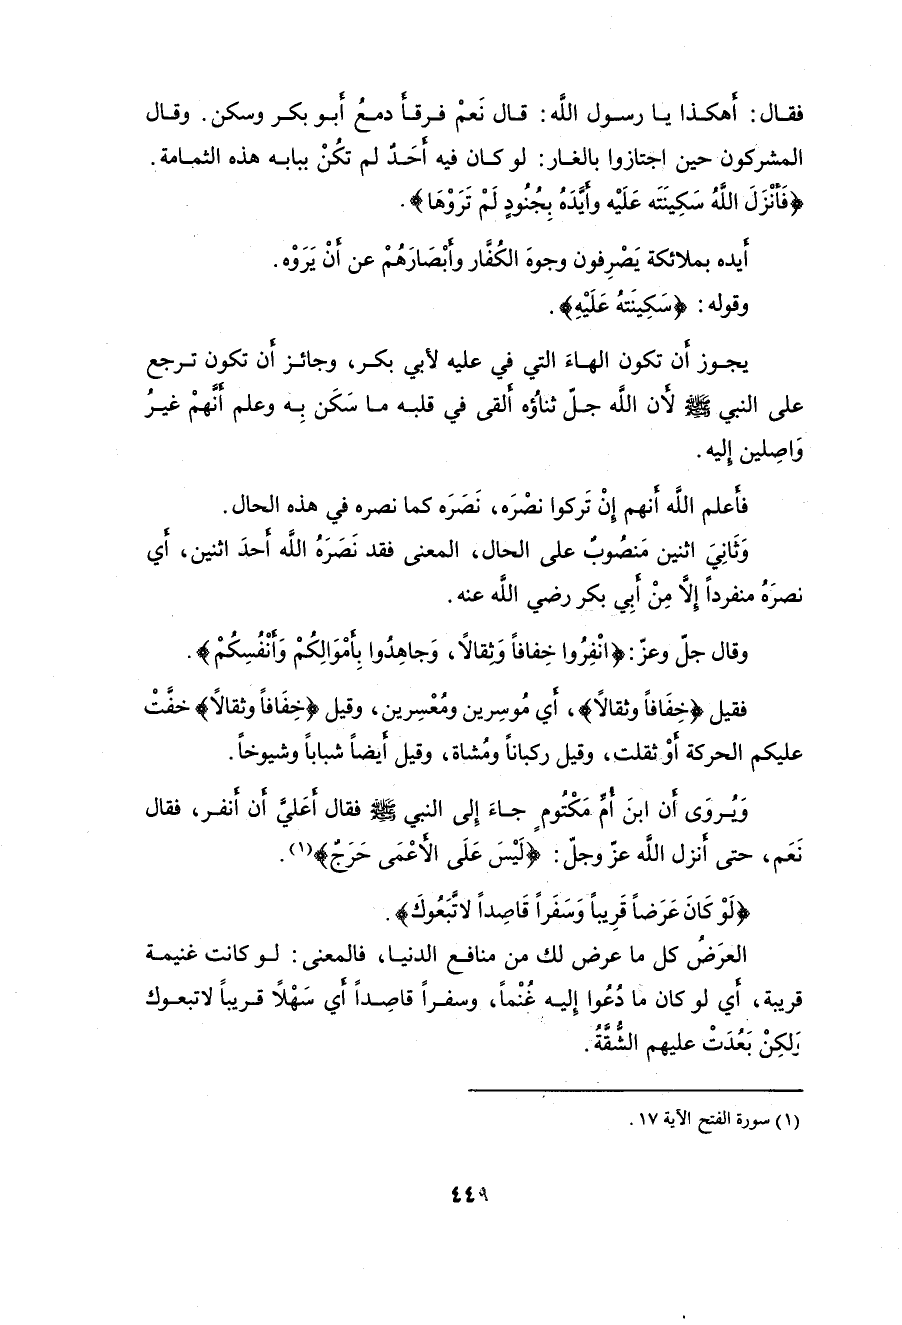 فقال: أهكذا يا رسول اللَّه: قال نَعَمْ فرقأ دمعُ أبو بكر وسكن. وقال
المشركون حين اجتازوا بالغار: لو كان فيه أَحَدٌ لم تكُنْ ببابه هذه الثمامة.
﴿فَأَنْزَلَ اللَّهُ سَكِينَتَه عَلَيْه وأَيَّدَهُ بِجُنُودٍ لَمْ تَرَوْهَا﴾.
أيده بملائكة يَصْرِفون وجوهَ الكُفَّار وأَبْصَارَهُمْ عن أَنْ يَرَوْه.
وقوله: ﴿سَكِينَتهُ عَلَيْهِ﴾.
يجوز أن تكون الهاءَ التي في عليه لأبي بكر، وجائز أن تكون ترجع
على النبي ﷺ لأن اللَّه جلّ ثناؤه ألقى في قلبه ما سَكَن بِه وعلم أَنَّهمْ غيرُ
وَاصِلين إليه.
فأعلم اللَّه أنهم إنْ تَركوا نصْرَه، نَصَرَه كما نصره في هذه الحال.
وَثَانِيَ اثنين مَنصُوبٌ على الحال، المعنى فقد نَصَرَهُ اللَّه أحدَ اثنين، أي
نصرَهُ منفرداً إلَّا مِنْ أَبِي بكر رضي اللَّه عنه.
وقال جلّ وعزّ: ﴿انْفِرُوا خِفافاً وَثِقالًا، وَجاهِدُوا بِأَمْوَالِكُمْ وَأَنْفُسِكُمْ﴾.
فقيل ﴿خِفَافاً وثقالًا﴾، أي مُوسِرين ومُعْسِرين، وقيل ﴿خِفَافاً وثقالًا﴾ خفَّتْ
عليكم الحركة أوْ ثقلت، وقيل ركباناً ومُشاة، وقيل أيضاً شباباً وشيوخاً.
وَيُروَى أن ابنَ أُمِّ مَكْتُومٍ جاءَ إلى النبي ﷺ فقال أَعَليَّ أن أنفر، فقال
نَعَم، حتى أنزل اللَّه عزّ وجلّ: ﴿لَيْسَ عَلَى الأَعْمَى حَرَجٌ﴾(١).
﴿لَوْ كَانَ عَرَضاً قَرِيباً وَسَفَراً قَاصِداً لاتَّبَعُوكَ﴾.
العرَضُ كل ما عرض لك من منافع الدنيا، فالمعنى: لو كانت غنيمة
قريبة، أي لو كان ما دُعُوا إليه غُنْماً، وسفراً قاصِداً أي سَهْلًا قريباً لاتبعوك
وَلكِنْ بَعُدَتْ عليهم الشُّقَّةُ.
(١) سورة الفتح الآية ١٧.
٤٤٩